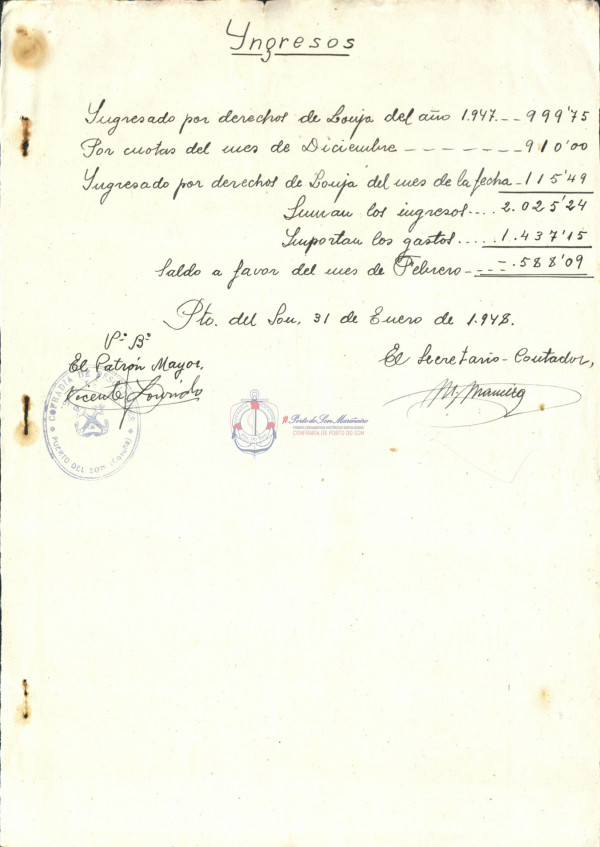 Yngresos
Yngresado por derechos de Lonja del año 1.947.--999'75
Por cuotas del mes de Diciembre - - - - - - - 910'00
Yngresado por derechos de Lonja del mes de la fecha-115'49
Suman los ingresos.... 2.025'24
Importan los gastos.....1.437'15
Saldo a favor del mes de Febrero-----.588'09
Pto. del Son, 31 de Enero de 1.948.
Vº Bº
El Patrón Mayor,
El Secretario-Contador,
Vicente
COFRADIA DE PESCADORES
PUERTO DEL SON (Coruña)
Porto do Son Mariñeiro
CONFRARÍA DE PORTO DO SON